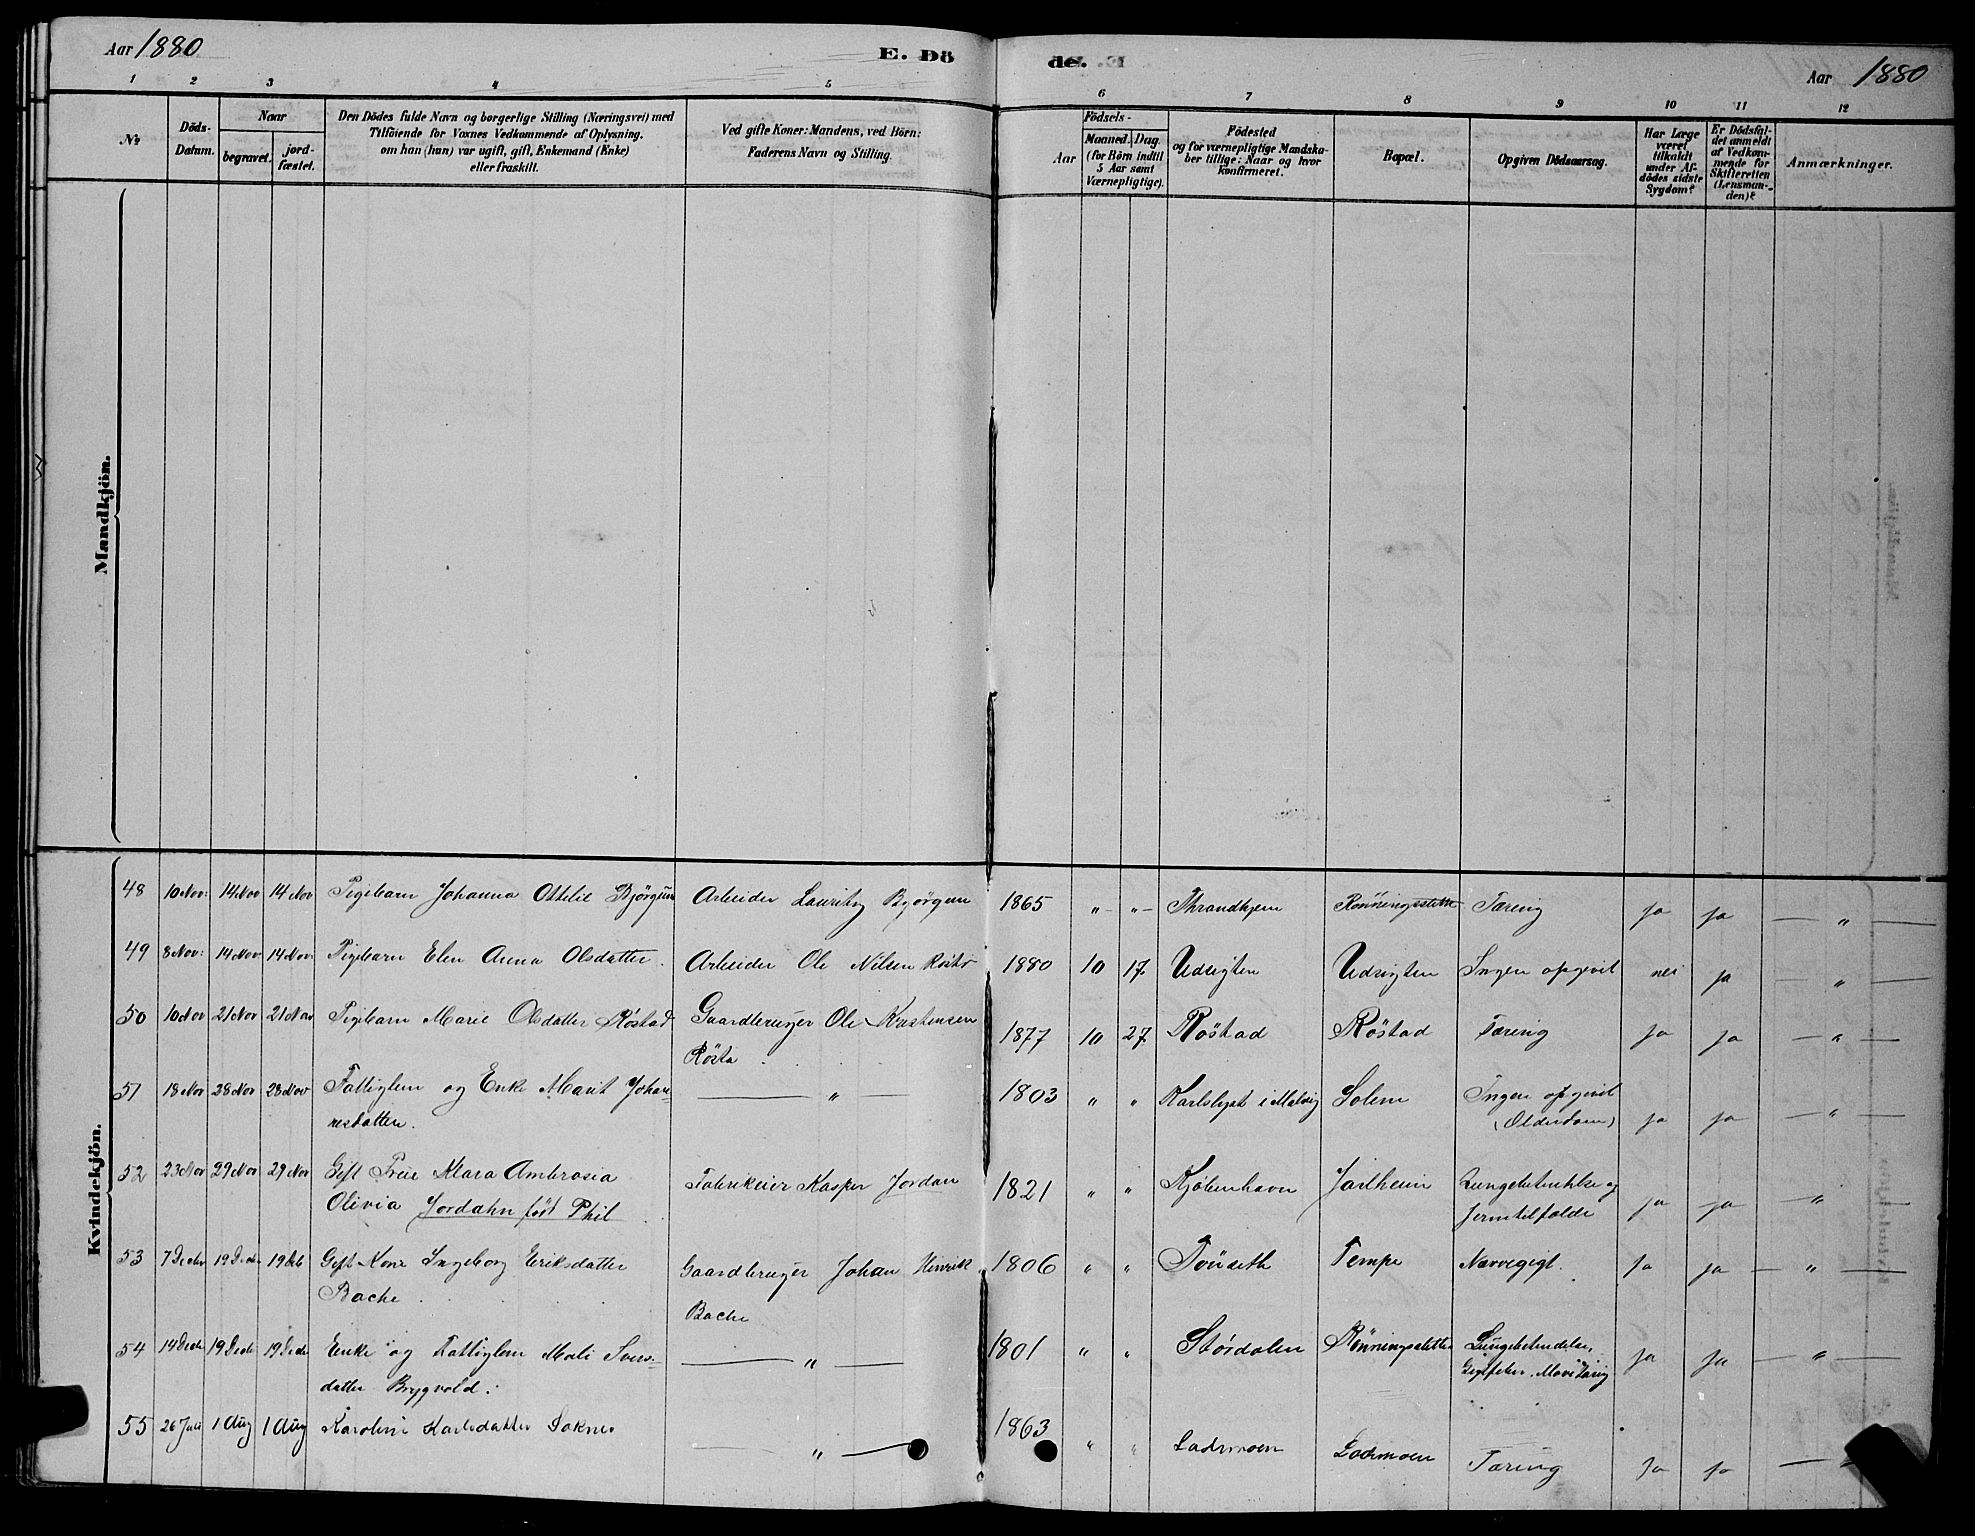 Aar 1880
E. Dö
de. E
Aar 1880
1 2 3 4 5 6 7 8 9 10 11 12
No
Döds-
Datum.
Naar
begravet.
jord-
fæstet.
Den Dödes fulde Navn og borgerlige Stilling (Næringsvei) med
Tilföiende for Voxnes Vedkommende af Oplysning,
om han (hun) var ugift, gift, Enkemand (Enke)
eller fraskilt.
Ved gifte Koner: Mandens, ved Börn:
Faderens Navn og Stilling.
Födsels-
Aar
Maaned. Dag.
(for Börn indtil
5 Aar samt
Værnepligtige).
Födested
og for værnepligtige Mandska-
ber tillige: Naar og hvor
konfirmeret.
Bopæl.
Opgiven Dödsaarsag.
Har Læge
været
tilkaldt
under Af-
dödes sidste
Sygdom?
Er Dödsfal-
det anmeldt
af Vedkom-
mende for
Skifteretten
(Lensman-
den)?
Anmærkninger.
Mandkjön.
Kvindekjön.
48 10 Nov: 14 Nov 14 Nov Pigebarn Johanna Ottilie Bjørgum Arbeider Lauritz Bjørgum 1865 " " Throndhjem Rønningsletten Tæring ja ja "
49 8 Nov: 14 Nov 14 Nov: Pigebarn Elen Anna Olsdatter. Arbeider Ole Nilsen 1880 10 17 Udsigten Udsigten Ingen opgivet nei ja "
50 10 Nov 21 Nov 21 Nov Pigebarn Marie Olsdatter Røstad Gaardbruger Ole Kristensen 1877 10 27 Røstad Røstad Tæring ja ja "
Røsta
51 18 Nov 28 Nov 28 Nov Fattiglem og Enke Marit Johan- " 1803 " " Karlslyst i Malvig Solem Ingen opgivet
nesdatter. (Alderdom) ja ja "
52 23 Nov 29 Nov 29 Nov Gift Frue Klara Ambrosia Fabrikeier Kasper Jordan 1821 " " Kjøbenhavn Jarlheim Lungebetændelse og
Olivia Jordahn født Phil ja ja "
53 7 Decbr 19 Decbr 19 Deb Gift Kone Ingeborg Eriksdatter Gaardbruger Johan Henrik 1806 " " Tønseth Tempe Nervegigt. ja ja "
Bache Bache
54 14 Decbr 19 Decbr 19 Decbr Enke og Fattiglem Mali Svens- " 1801 " " Størdalen Rønningsletten Lungebetændelse,
datter Brygvold. ja ja "
55 26 Juli 1 Aug 1 Aug Karoline Karlsdatter Soknes " 1863 " " Lademoen Lademoen Tæring ja ja